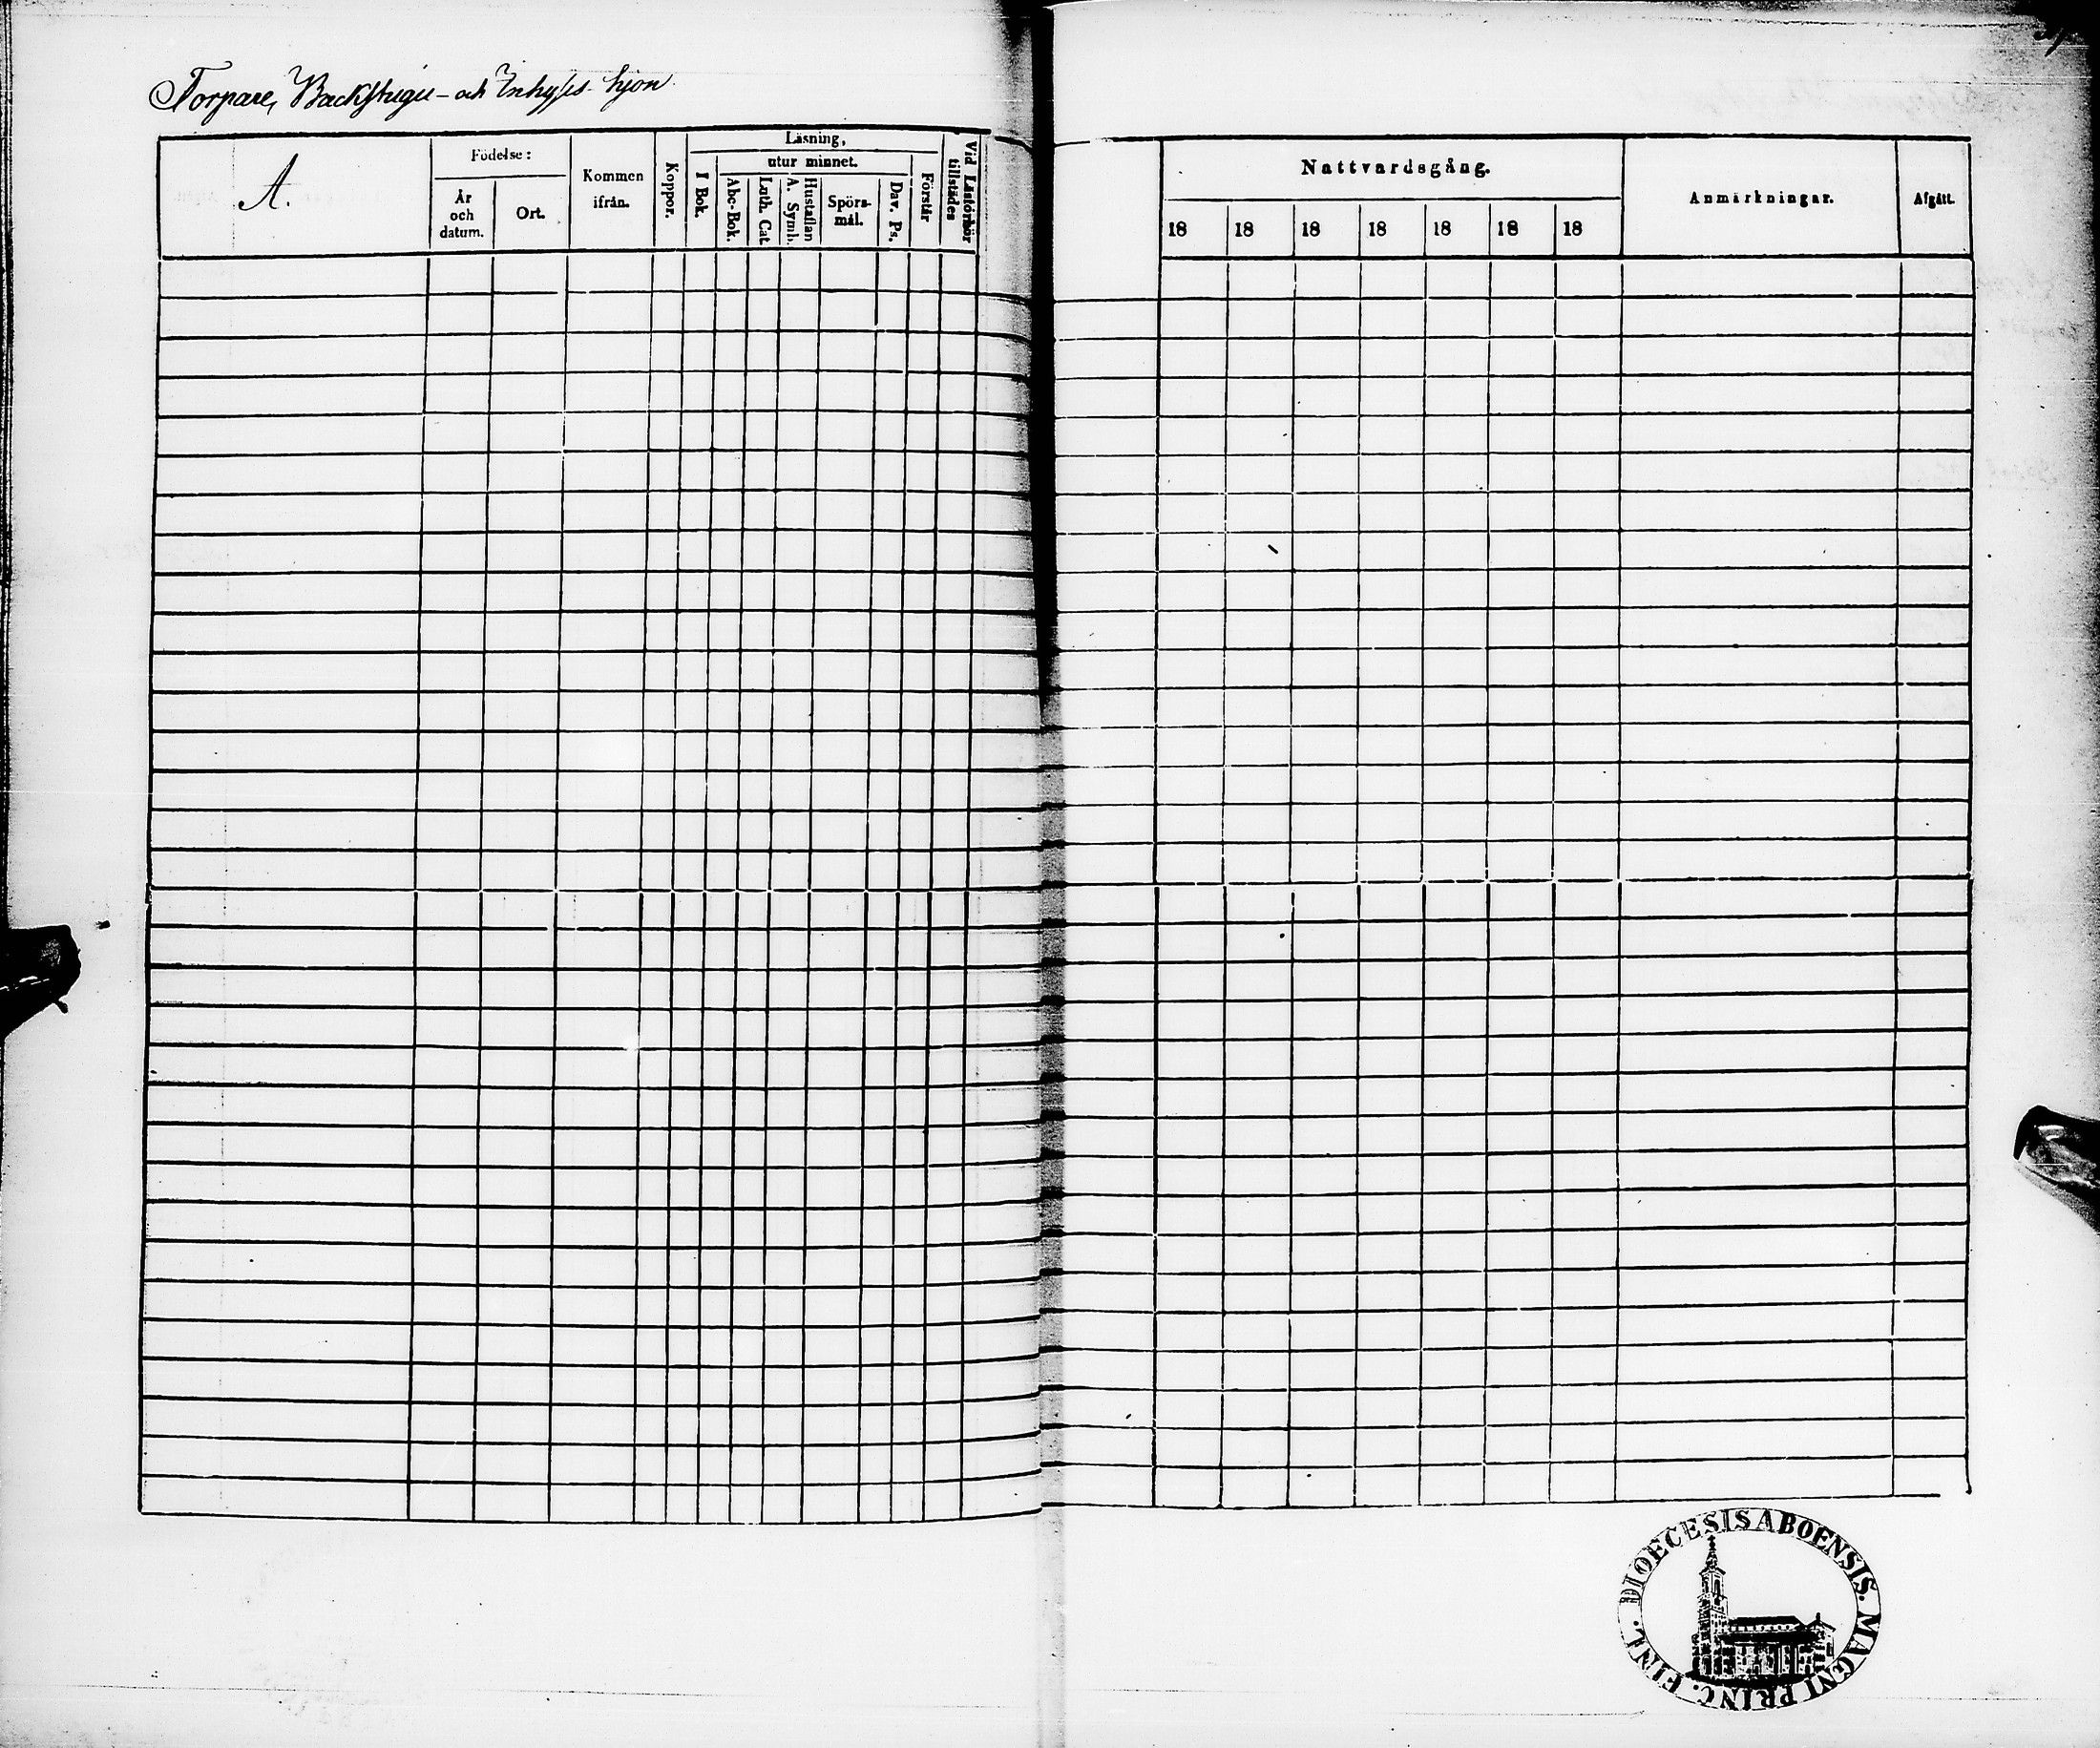 Torpare, Backstugu- och Inhyses-hjon
A.
Födelse:
År och datum.
Ort.
Kommen ifrån.
Koppor.
Läsning,
I Bok.
utur minnet.
Abc-Bok.
Luth. Cat.
A. Symb.
Hustaflan
Spörs-mål.
Dav. Ps.
Förstår
Vid Läsförhör tillstädes
Nattvardsgång.
18 18 18 18 18 18 18
Anmärkningar.
Afgått.
DIOECESIS ABOENSIS. MAGNI PRINC. FINL.